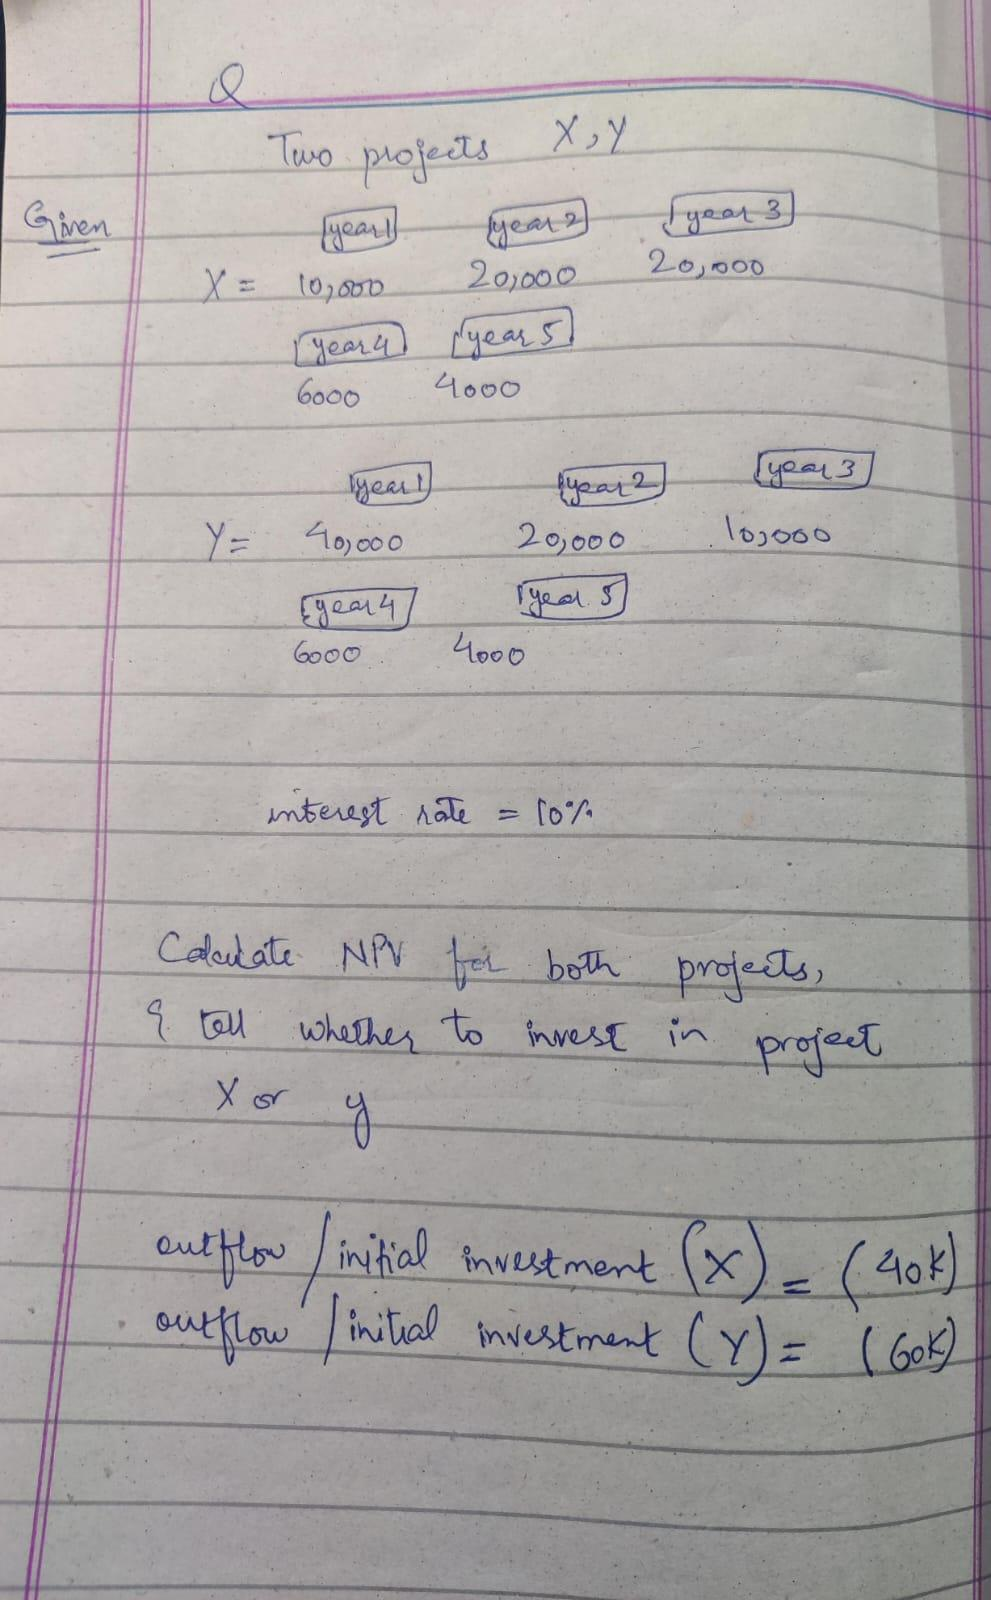 Q
Two projects X, Y
Given
year 1 year 2 year 3
X = 10,000 20,000 20,000
year 4 year 5
6000 4000
year 1 year 2 year 3
Y = 40,000 20,000 10,000
year 4 year 5
6000 4000
interest rate = 10%
Calculate NPV for both projects,
& tell whether to invest in project
X or y
outflow / initial investment (X) = (40K)
outflow / initial investment (Y) = (60K)